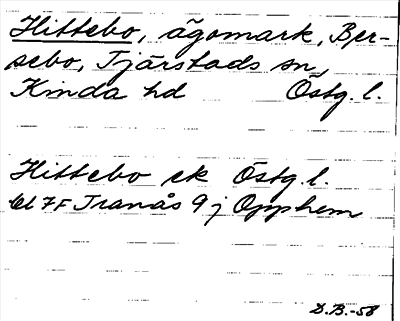 Hittebo, ägomark, Ber-
sebo, Tjärstads sn,
Kinda hd Östg. l.
Hittebo ek Östg. l.
bl 7F Tranås 9j Opphem
D.B.-58